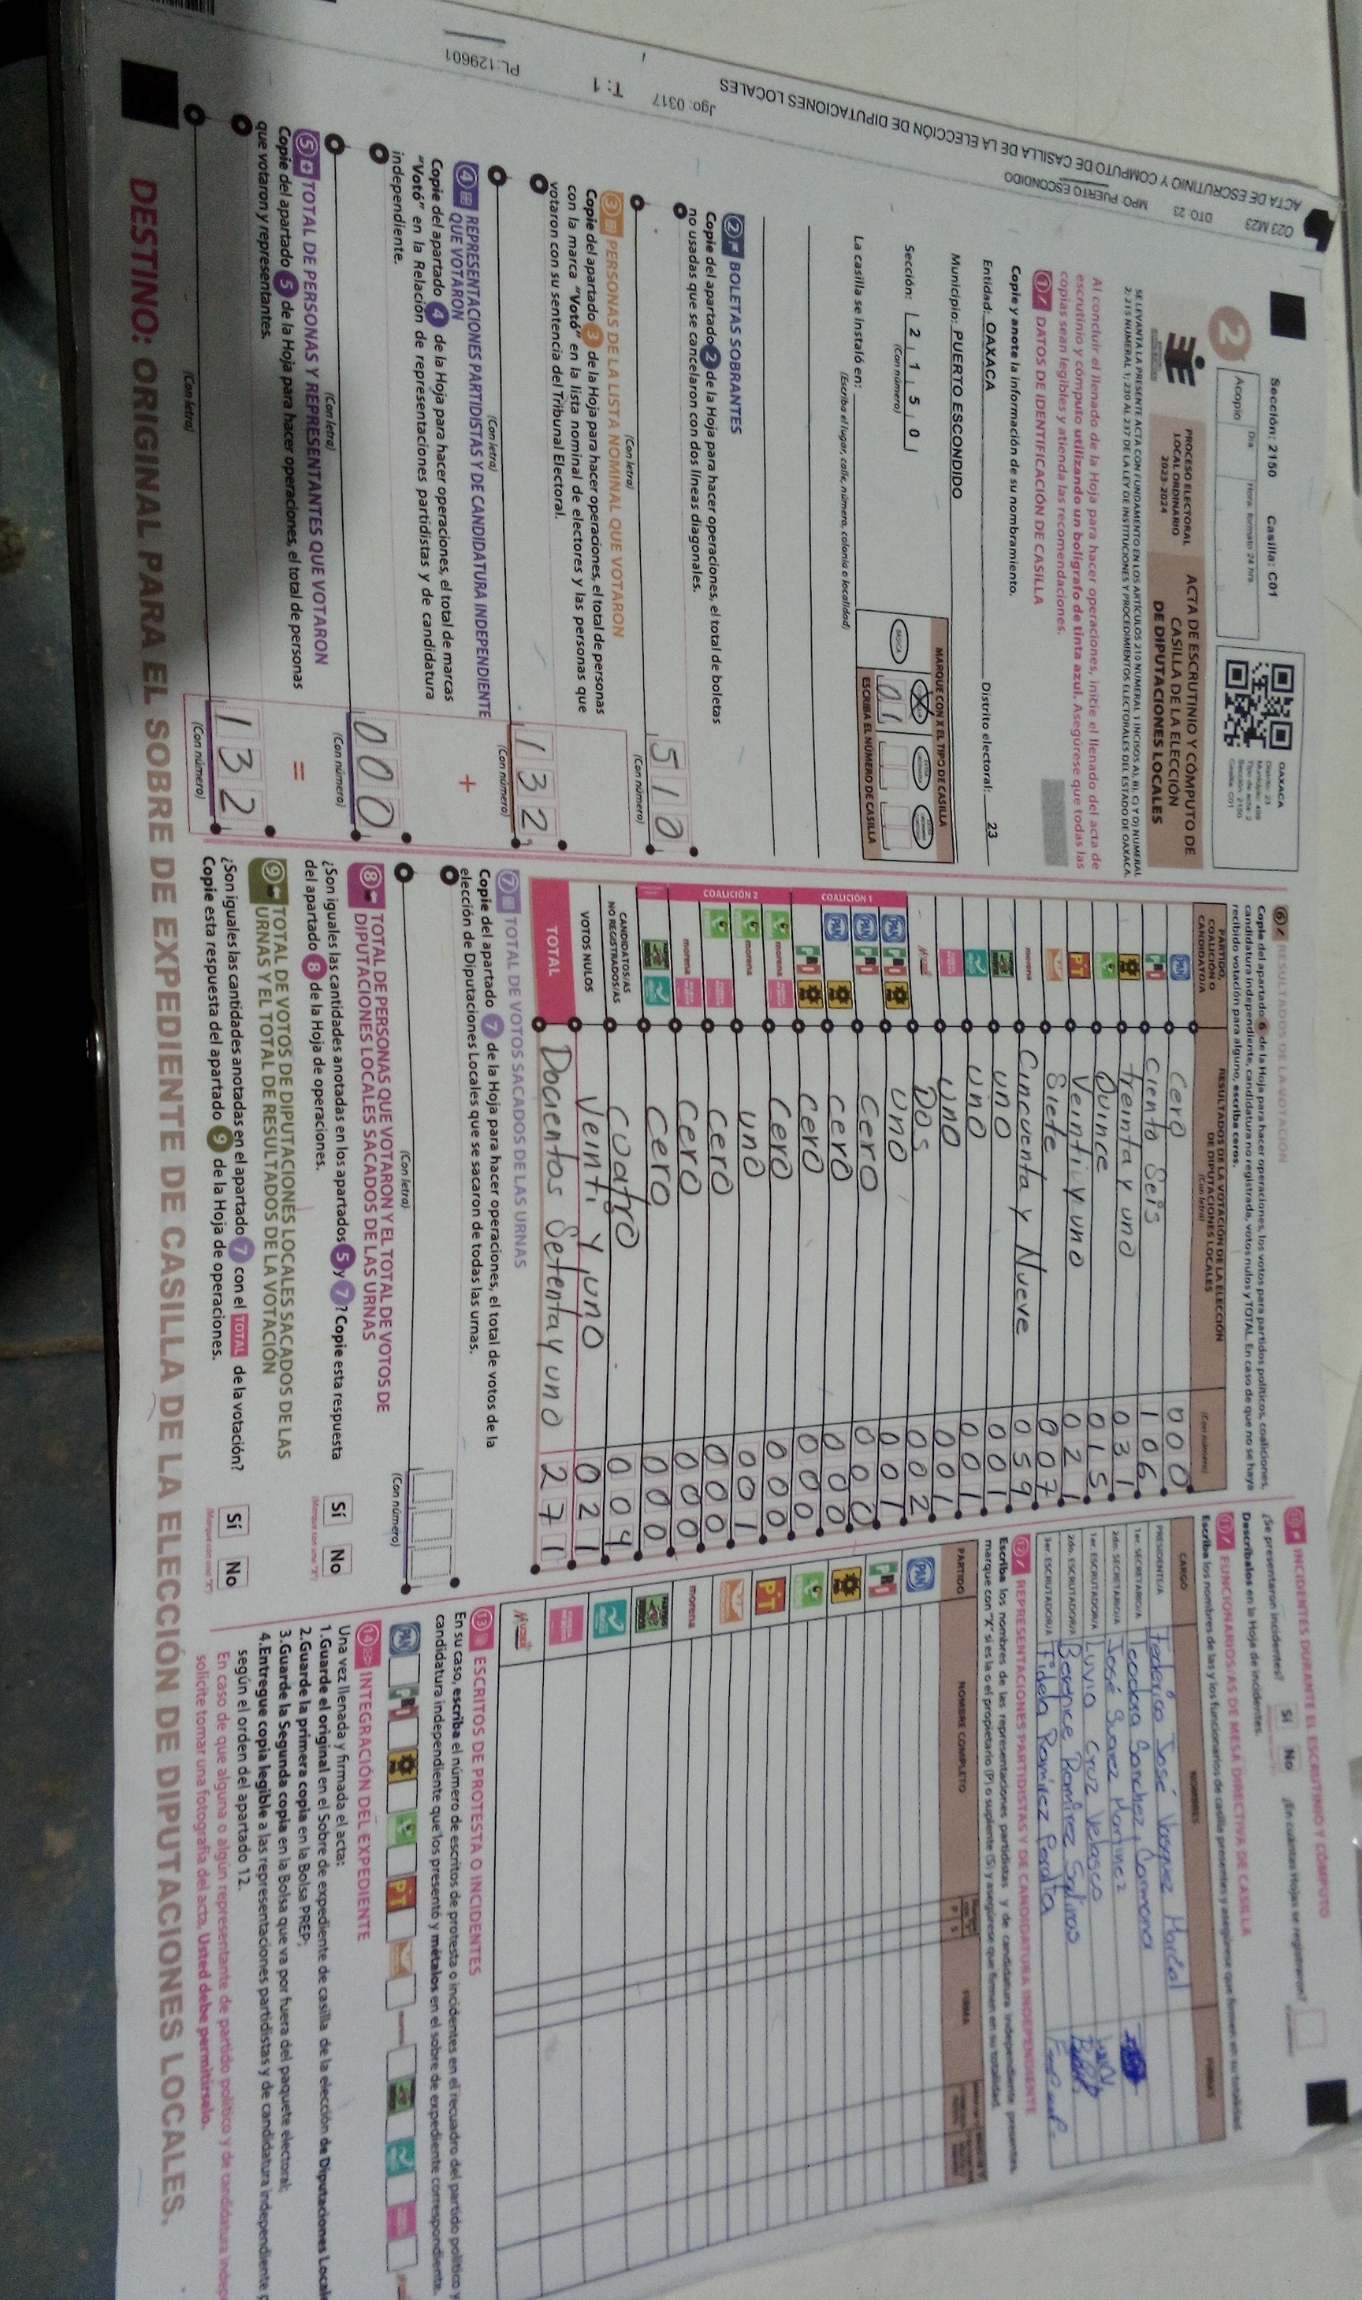 023 M23 DTO: 23 MPO: PUERTO ESCONDIDO
ACTA DE ESCRUTINIO Y CÓMPUTO DE CASILLA DE LA ELECCIÓN DE DIPUTACIONES LOCALES
Jgo: 0317
T: 1
PL:129601
Sección: 2150 Casilla: C01
2
Acopio
Día:
Hora: formato 24 hrs.
OAXACA
Distrito: 23
Tipo de acta: 2
Sección: 2150
Casilla: C01
PROCESO ELECTORAL
LOCAL ORDINARIO
2023-2024
ACTA DE ESCRUTINIO Y CÓMPUTO DE
CASILLA DE LA ELECCIÓN
DE DIPUTACIONES LOCALES
SE LEVANTA LA PRESENTE ACTA CON FUNDAMENTO EN LOS ARTÍCULOS 210 NUMERAL 1 INCISOS A), B), C) Y D) NUMERAL
2; 215 NUMERAL 1; 230 AL 237 DE LA LEY DE INSTITUCIONES Y PROCEDIMIENTOS ELECTORALES DEL ESTADO DE OAXACA.
Al concluir el llenado de la Hoja para hacer operaciones, inicie el llenado del acta de
escrutinio y cómputo utilizando un bolígrafo de tinta azul. Asegúrese que todas las
copias sean legibles y atienda las recomendaciones.
1 DATOS DE IDENTIFICACIÓN DE CASILLA
Copie y anote la información de su nombramiento.
Entidad: OAXACA Distrito electoral: 23
Municipio: PUERTO ESCONDIDO
Sección: 2 1 5 0
(Con número)
MARQUE CON X EL TIPO DE CASILLA
BÁSICA
ESCRIBA EL NÚMERO DE CASILLA
01
La casilla se instaló en:
(Escriba el lugar, calle, número, colonia o localidad)
2 BOLETAS SOBRANTES
Copie del apartado 2 de la Hoja para hacer operaciones, el total de boletas
no usadas que se cancelaron con dos líneas diagonales.
510
(Con letra) (Con número)
3 PERSONAS DE LA LISTA NOMINAL QUE VOTARON
Copie del apartado 3 de la Hoja para hacer operaciones, el total de personas
con la marca "Votó" en la lista nominal de electores y las personas que
votaron con su sentencia del Tribunal Electoral.
132
(Con letra) (Con número)
4 REPRESENTACIONES PARTIDISTAS Y DE CANDIDATURA INDEPENDIENTE
QUE VOTARON
+
Copie del apartado 4 de la Hoja para hacer operaciones, el total de marcas
"Votó" en la Relación de representaciones partidistas y de candidatura
independiente.
000
(Con letra) (Con número)
5 TOTAL DE PERSONAS Y REPRESENTANTES QUE VOTARON
=
Copie del apartado 5 de la Hoja para hacer operaciones, el total de personas
que votaron y representantes.
132
(Con letra) (Con número)
6 RESULTADOS DE LA VOTACIÓN
Copie del apartado 6 de la Hoja para hacer operaciones, los votos para partidos políticos, coaliciones,
candidatura independiente, candidatura no registrada, votos nulos y TOTAL. En caso de que no se haya
recibido votación para alguno, escriba ceros.
PARTIDO, COALICIÓN O CANDIDATO/A
RESULTADOS DE LA VOTACIÓN DE LA ELECCIÓN DE DIPUTACIONES LOCALES
(Con letra) (Con número)
PAN cero 000
PRI ciento seis 106
treinta y uno 031
Quince 015
PT Veinti y uno 021
Siete 007
morena Cincuenta y Nueve 059
uno 001
uno 001
uno 001
Dos 002
COALICIÓN 1
PAN PRI uno 001
PAN PRI cero 000
PAN cero 000
PRI cero 000
COALICIÓN 2
morena cero 000
morena uno 001
cero 000
morena cero 000
cero 000
CANDIDATOS/AS NO REGISTRADOS/AS cuatro 004
VOTOS NULOS Veinti y uno 021
TOTAL Docientos Setenta y uno 271
7 TOTAL DE VOTOS SACADOS DE LAS URNAS
Copie del apartado 7 de la Hoja para hacer operaciones, el total de votos de la
elección de Diputaciones Locales que se sacaron de todas las urnas.
(Con letra) (Con número)
8 TOTAL DE PERSONAS QUE VOTARON Y EL TOTAL DE VOTOS DE
DIPUTACIONES LOCALES SACADOS DE LAS URNAS
¿Son iguales las cantidades anotadas en los apartados 5 y 7? Copie esta respuesta
del apartado 8 de la Hoja de operaciones.
Sí No
9 TOTAL DE VOTOS DE DIPUTACIONES LOCALES SACADOS DE LAS
URNAS Y EL TOTAL DE RESULTADOS DE LA VOTACIÓN
¿Son iguales las cantidades anotadas en el apartado 7 con el TOTAL de la votación?
Copie esta respuesta del apartado 9 de la Hoja de operaciones.
Sí No
INCIDENTES DURANTE EL ESCRUTINIO Y CÓMPUTO
¿Se presentaron incidentes? Sí No ¿En cuántas Hojas se registraron?
Descríbalos en la Hoja de incidentes.
11 FUNCIONARIOS/AS DE MESA DIRECTIVA DE CASILLA
Escriba los nombres de las y los funcionarios de casilla presentes y asegúrese que firmen en su totalidad
CARGO NOMBRES FIRMAS
PRESIDENTE/A Federico José Vasquez
1er. SECRETARIO/A Teodora Sanchez Carmona
2do. SECRETARIO/A José Suarez Martinez
1er. ESCRUTADOR/A Luvia Cruz Velasco
2do. ESCRUTADOR/A Ramirez Salinas
3er. ESCRUTADOR/A Fidela Ramirez Peralta
12 REPRESENTACIONES PARTIDISTAS Y DE CANDIDATURA INDEPENDIENTE
Escriba los nombres de las representaciones partidistas y de candidatura independiente presentes,
marque con "X" si es la o el propietario (P) o suplente (S) y asegúrese que firmen en su totalidad.
PARTIDO NOMBRE COMPLETO P S FIRMA
PAN
PRI
PT
morena
13 ESCRITOS DE PROTESTA O INCIDENTES
En su caso, escriba el número de escritos de protesta o incidentes en el recuadro del partido político y
candidatura independiente que los presentó y métalos en el sobre de expediente correspondiente.
PAN PRI PT
14 INTEGRACIÓN DEL EXPEDIENTE
Una vez llenada y firmada el acta:
1.Guarde el original en el Sobre de expediente de casilla de la elección de Diputaciones Local
2.Guarde la primera copia en la Bolsa PREP;
3.Guarde la Segunda copia en la Bolsa que va por fuera del paquete electoral;
4.Entregue copia legible a las representaciones partidistas y de candidatura independiente
según el orden del apartado 12.
En caso de que alguna o algún representante de partido político y de candidatura indep
solicite tomar una fotografía del acta, Usted debe permitírselo.
DESTINO: ORIGINAL PARA EL SOBRE DE EXPEDIENTE DE CASILLA DE LA ELECCIÓN DE DIPUTACIONES LOCALES.